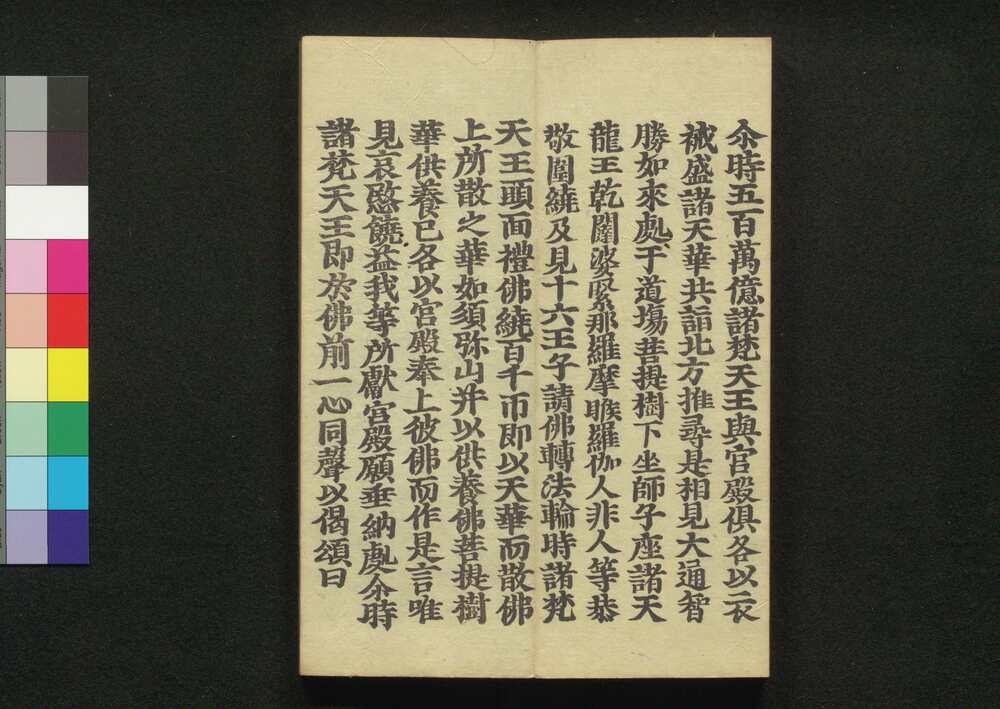 尒時五百萬億諸梵天王與宮殿俱各以衣
祴盛諸天華共詣北方推尋是相見大通智
勝如來處于道場菩提樹下坐師子座諸天
龍王乾闥婆緊那羅摩睺羅伽人非人等恭
敬圍繞及見十六王子請佛轉法輪時諸梵
天王頭面禮佛繞百千帀即以天華而散佛
上所散之華如須弥山并以供養佛菩提樹
華供養已各以宮殿奉上彼佛而作是言唯
見哀愍饒益我等所獻宮殿願垂納處尒時
諸梵天王即於佛前一心同聲以偈頌曰